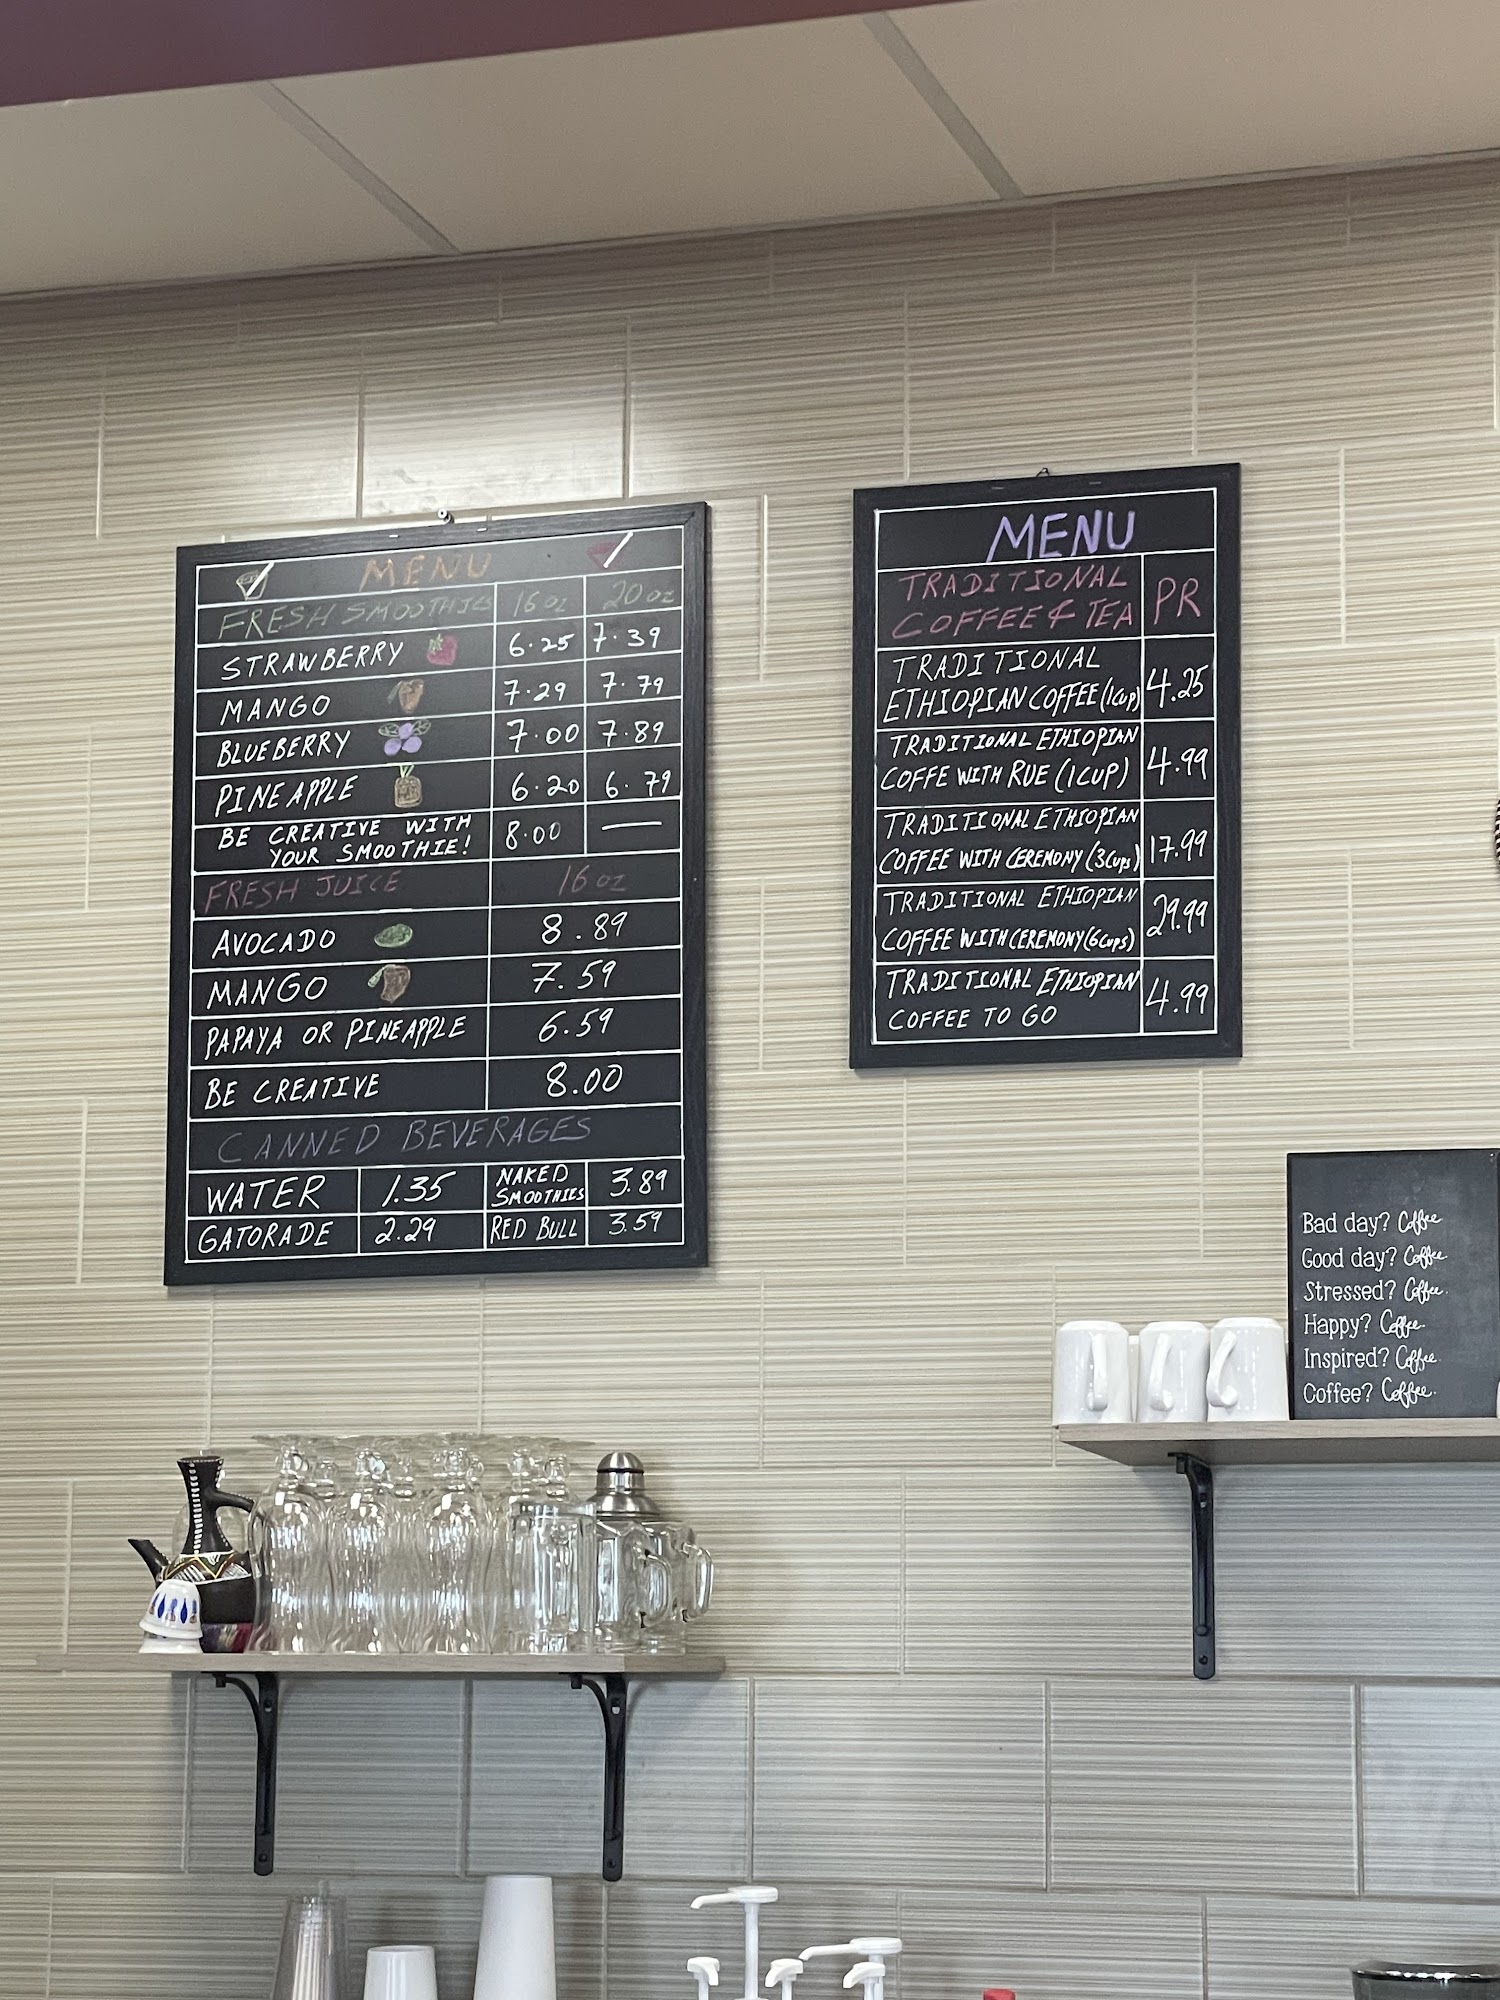 MENU
FRESH SMOOTHIES 16 oz 20 oz
STRAWBERRY 6.25 7.39
MANGO 7.29 7.79
BLUEBERRY 7.00 7.89
PINEAPPLE 6.20 6.79
BE CREATIVE WITH
YOUR SMOOTHIE! 8.00 —
FRESH JUICE 16 oz
AVOCADO 8.89
MANGO 7.59
PAPAYA OR PINEAPPLE 6.59
BE CREATIVE 8.00
CANNED BEVERAGES
WATER 1.35 NAKED
SMOOTHIES 3.89
GATORADE 2.29 RED BULL 3.59
MENU
TRADITIONAL
COFFEE & TEA PR
TRADITIONAL
ETHIOPIAN COFFEE (1cup) 4.25
TRADITIONAL ETHIOPIAN
COFFE WITH RUE (1CUP) 4.99
TRADITIONAL ETHIOPIAN
COFFEE WITH CEREMONY (3cups) 17.99
TRADITIONAL ETHIOPIAN
COFFEE WITH CEREMONY (6cups) 29.99
TRADITIONAL ETHIOPIAN
COFFEE TO GO 4.99
Bad day? Coffee
Good day? Coffee.
Stressed? Coffee.
Happy? Coffee.
Inspired? Coffee.
Coffee? Coffee.